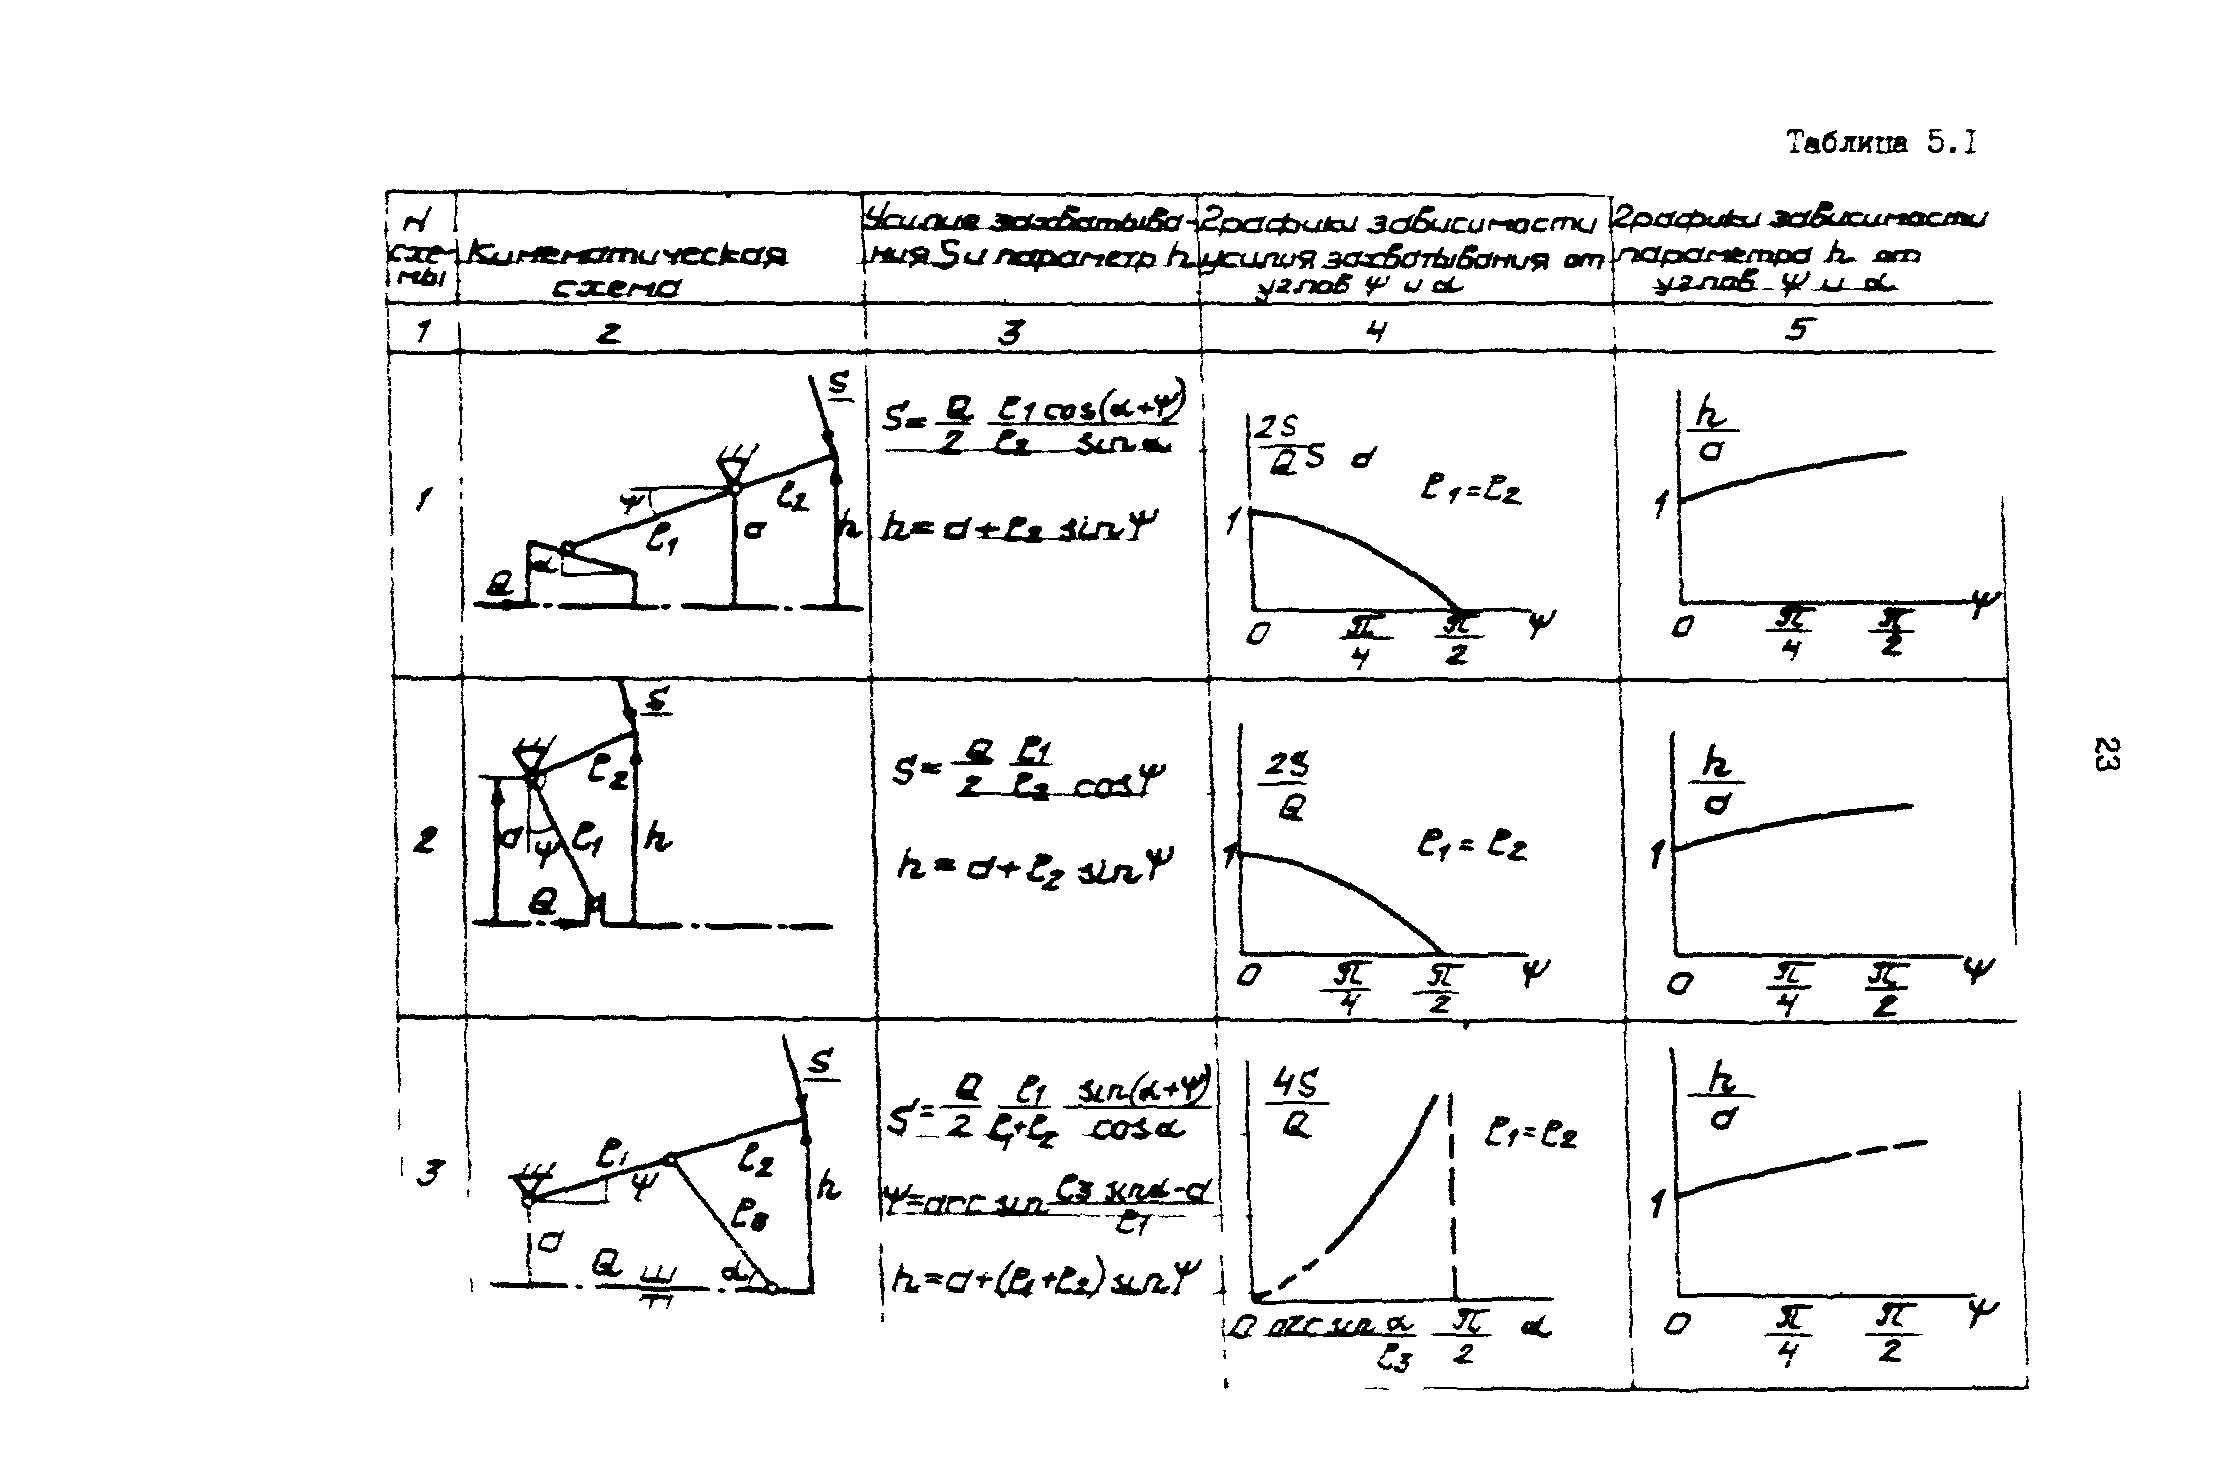 Таблица 5.I
N схемы
Кинематическая схема
Усилие захватывания S и параметр h
Графики зависимости усилия захватывания от углов Ψ и α
Графики зависимости параметра h от углов Ψ и α
1 2 3 4 5
1
S
Ψ
ℓ1
ℓ2
a
h
α
Q
S = Q/2 ℓ1 cos(α+Ψ)/ℓ2 sin α
h = a + ℓ2 sin Ψ
2S/Q S a
ℓ1 = ℓ2
1
0 π/4 π/2 Ψ
h/a
1
0 π/4 π/2 Ψ
2
S
ℓ2
a
Ψ
ℓ1
h
Q
S = Q/2 ℓ1/ℓ2 cos Ψ
h = a + ℓ2 sin Ψ
2S/Q
ℓ1 = ℓ2
1
0 π/4 π/2 Ψ
h/a
1
0 π/4 π/2 Ψ
3
S
ℓ1
Ψ
ℓ2
h
ℓ3
a
Q
α
S = Q/2 ℓ1/(ℓ1+ℓ2) sin(α+Ψ)/cos α
Ψ = arc sin (ℓ3 sin α - a)/ℓ1
h = a + (ℓ1+ℓ2) sin Ψ
4S/Q
ℓ1 = ℓ2
0 arc sin a/ℓ3 π/2 α
h/a
1
0 π/4 π/2 Ψ
23